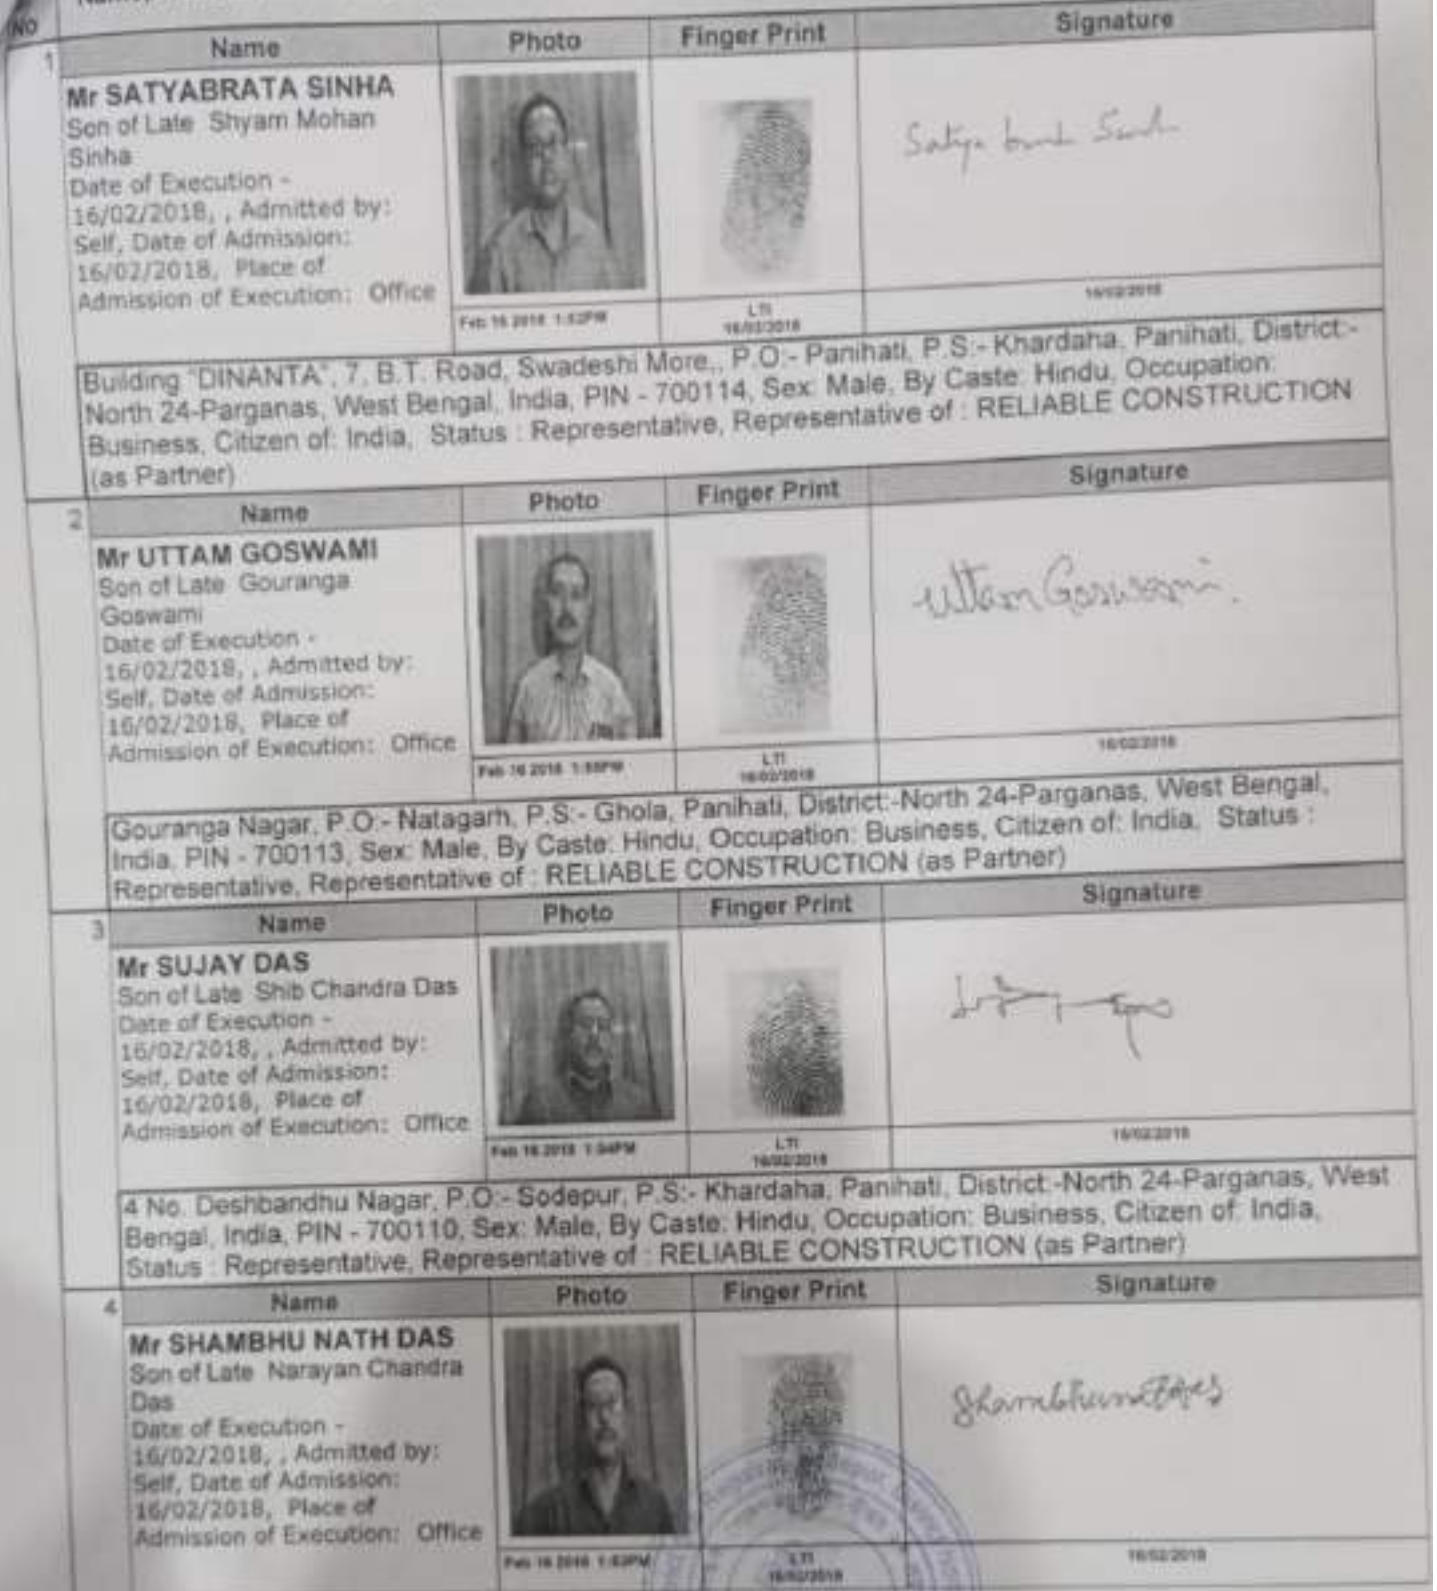 No
Name Photo Finger Print Signature
1
Mr SATYABRATA SINHA
Son of Late Shyam Mohan
Sinha
Date of Execution -
16/02/2018, , Admitted by:
Self, Date of Admission:
16/02/2018, Place of
Admission of Execution: Office
Satya
Feb 16 2018 1:52PM
LTI
16/02/2018
16/02/2018
Building "DINANTA", 7, B.T. Road, Swadeshi More,, P.O:- Panihati, P.S:- Khardaha, Panihati, District:-
North 24-Parganas, West Bengal, India, PIN - 700114, Sex: Male, By Caste: Hindu, Occupation:
Business, Citizen of: India, Status : Representative, Representative of : RELIABLE CONSTRUCTION
(as Partner)
2
Name Photo Finger Print Signature
Mr UTTAM GOSWAMI
Son of Late Gouranga
Goswami
Date of Execution -
16/02/2018, , Admitted by:
Self, Date of Admission:
16/02/2018, Place of
Admission of Execution: Office
Uttam Goswami.
Feb 16 2018
LTI
16/02/2018
16/02/2018
Gouranga Nagar, P.O:- Natagarh, P.S:- Ghola, Panihati, District:-North 24-Parganas, West Bengal,
India, PIN - 700113, Sex: Male, By Caste: Hindu, Occupation: Business, Citizen of: India, Status :
Representative, Representative of : RELIABLE CONSTRUCTION (as Partner)
3
Name Photo Finger Print Signature
Mr SUJAY DAS
Son of Late Shib Chandra Das
Date of Execution -
16/02/2018, , Admitted by:
Self, Date of Admission:
16/02/2018, Place of
Admission of Execution: Office
Feb 16 2018 1:54PM
LTI
16/02/2018
16/02/2018
4 No. Deshbandhu Nagar, P.O:- Sodepur, P.S:- Khardaha, Panihati, District:-North 24-Parganas, West
Bengal, India, PIN - 700110, Sex: Male, By Caste: Hindu, Occupation: Business, Citizen of: India,
Status : Representative, Representative of : RELIABLE CONSTRUCTION (as Partner)
4
Name Photo Finger Print Signature
Mr SHAMBHU NATH DAS
Son of Late Narayan Chandra
Das
Date of Execution -
16/02/2018, , Admitted by:
Self, Date of Admission:
16/02/2018, Place of
Admission of Execution: Office
Feb 16 2018 1:53PM
LTI
16/02/2018
16/02/2018